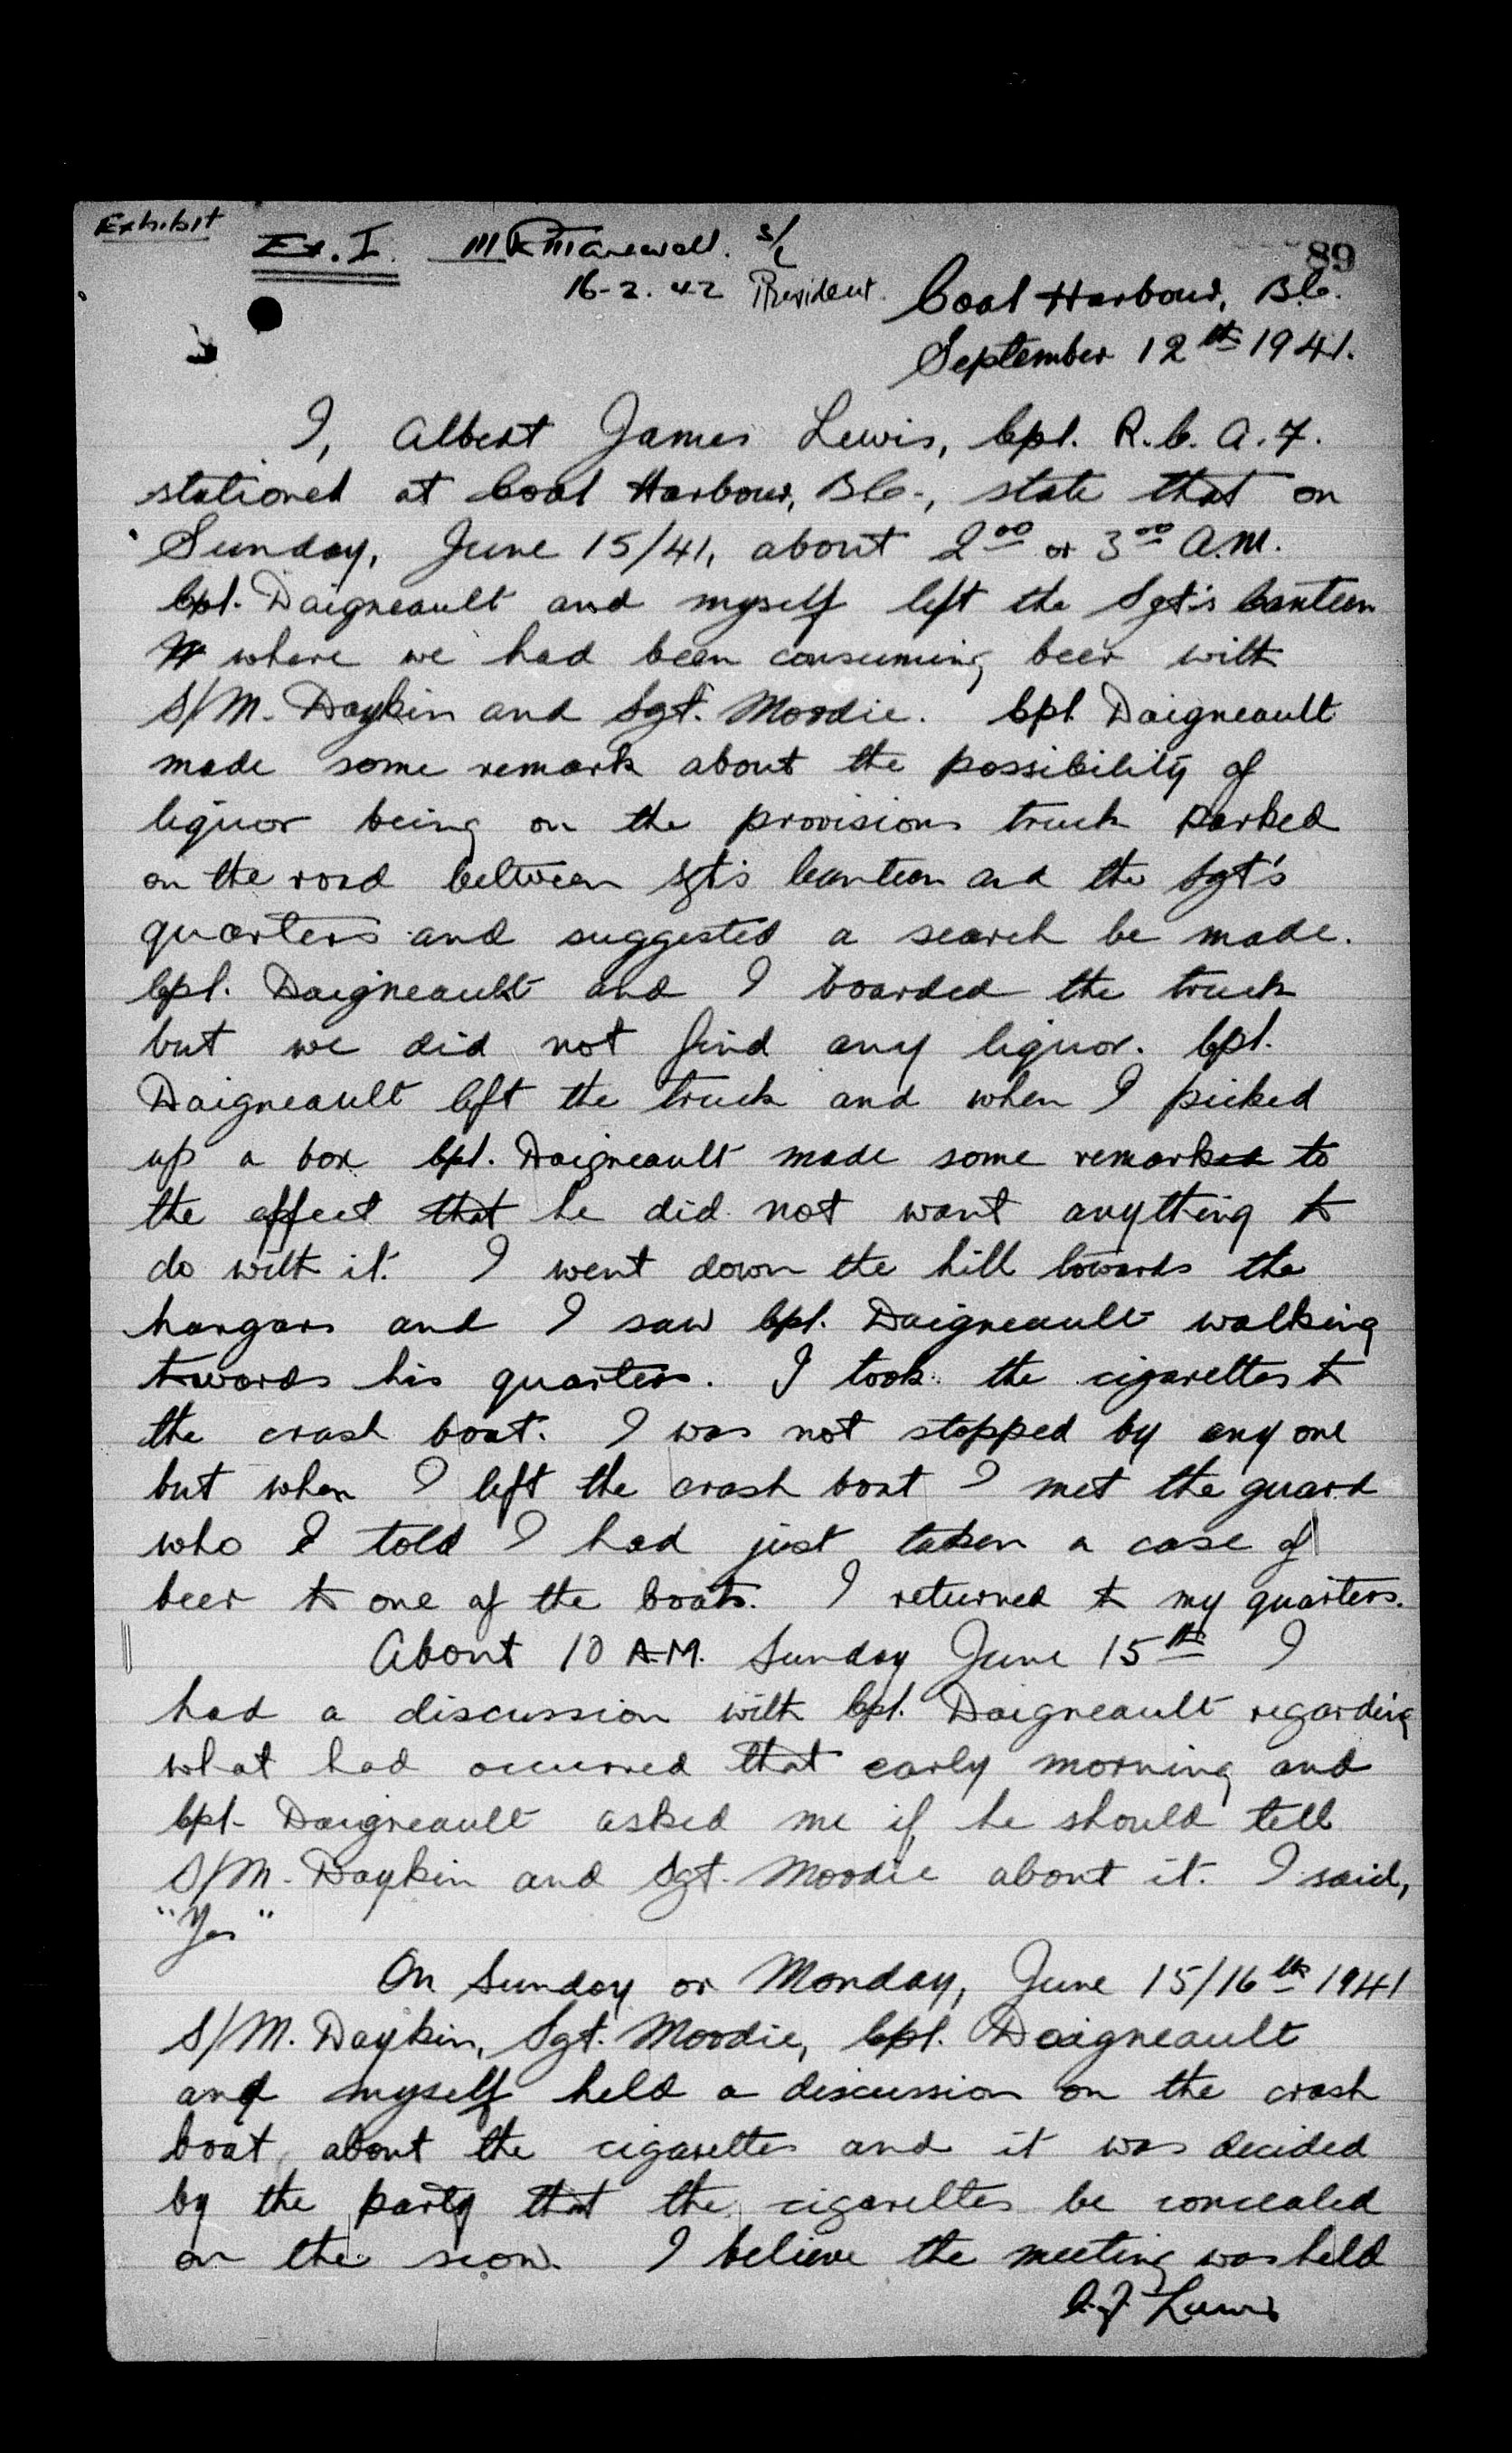 Exhibit
Ex. I. S/L
89
16-2-42 President.
Coal Harbour, B.C.
September 12th 1941.
I, Albert James Lewis, Cpl. R.C.A.F.
stationed at Coal Harbour, B.C., state that on
Sunday, June 15/41, about 2 00 or 3 00 A.M.
Cpl. Daigneault and myself left the Sgt's Canteen
where we had been consuming beer with
S/M. Daykin and Sgt. Moodie. Cpl Daigneault
made some remark about the possibility of
liquor being on the provisions truck parked
on the road between Sgt's Canteen and the Sgt's
quarters and suggested a search be made.
Cpl. Daigneault and I boarded the truck
but we did not find any liquor. Cpl.
Daigneault left the truck and when I picked
up a box Cpl. Daigneault made some remark to
the effect that he did not want anything to
do with it. I went down the hill towards the
hangars and I saw Cpl. Daigneault walking
towards his quarters. I took the cigarettes to
the crash boat. I was not stopped by any one
but when I left the crash boat I met the guard
who I told I had just taken a case of
beer to one of the boats. I returned to my quarters.
About 10 A.M. Sunday June 15th I
had a discussion with Cpl. Daigneault regarding
what had occurred that early morning and
Cpl. Daigneault asked me if he should tell
S/M. Daykin and Sgt. Moodie about it. I said,
"Yes"
On Sunday or Monday, June 15/16th 1941
S/M. Daykin, Sgt. Moodie, Cpl. Daigneault
and myself held a discussion on the crash
boat about the cigarettes and it was decided
by the party that the cigarettes be concealed
on the scow. I believe the meeting was held
A.J. Lewis